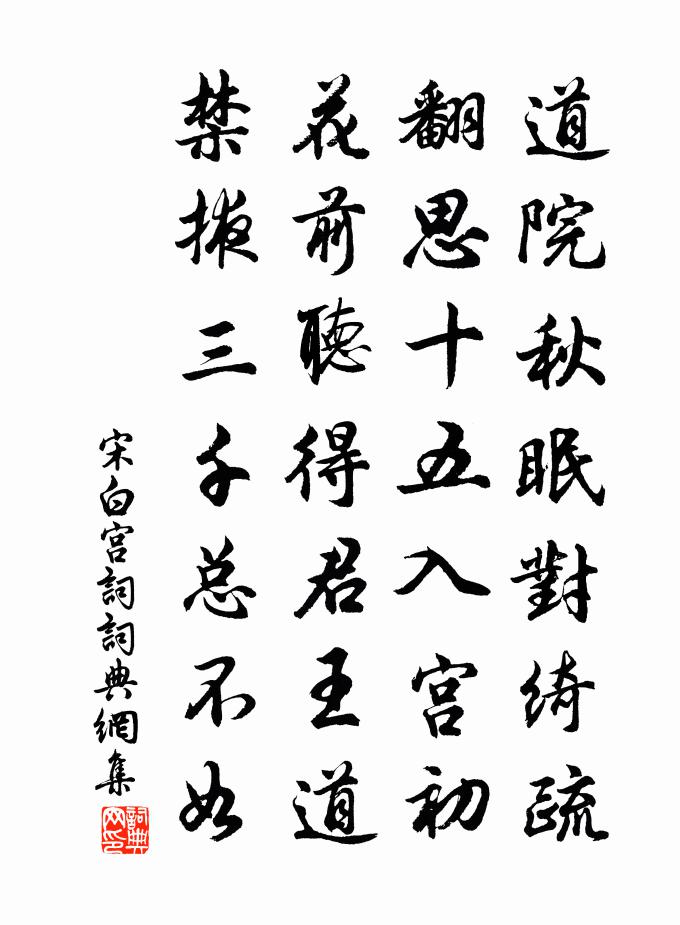 道院秋眠對綺疏
翻思十五入宫初
花前聽得君王道
禁掖三千总不如
宋白宫詞詞典網集
詞典网印